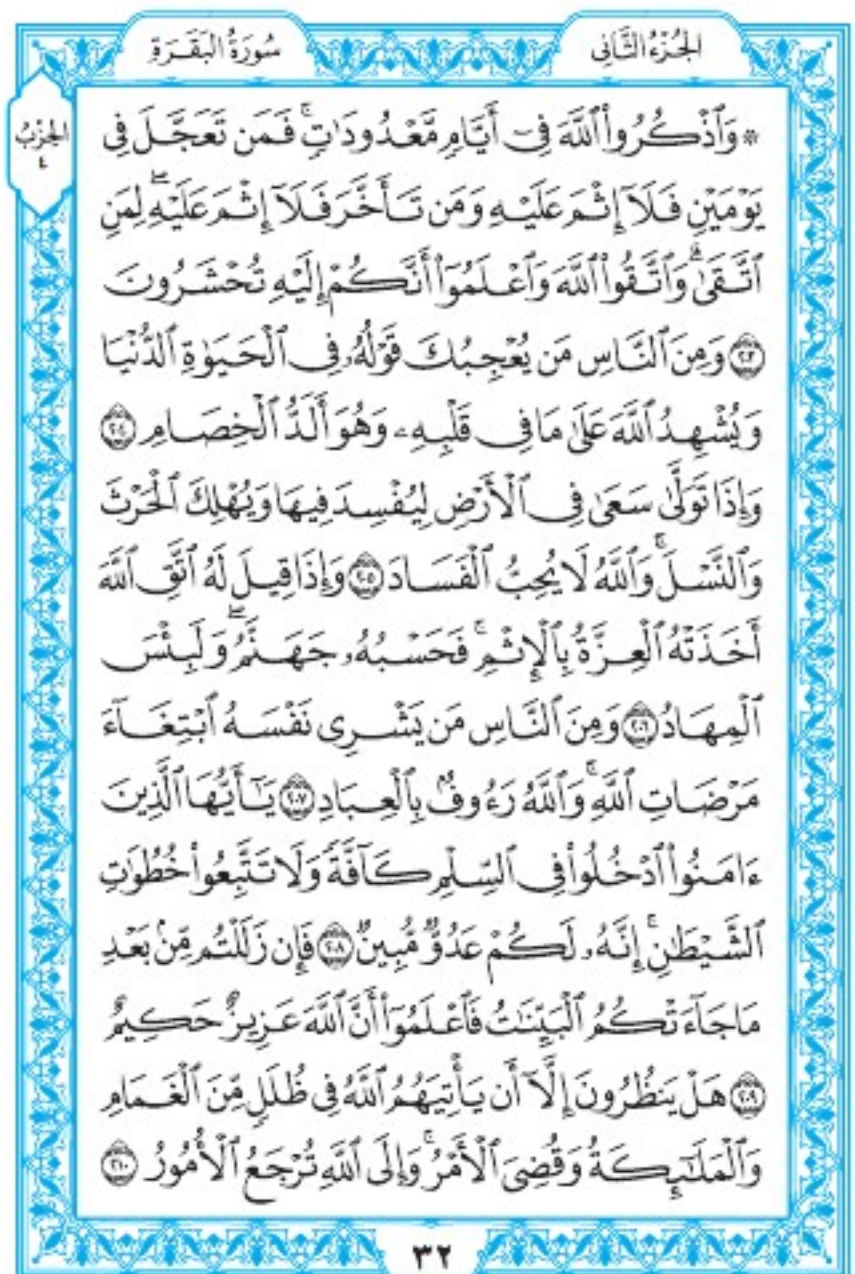 الجُزْءُ الثَّانِى
سُورَةُ البَقَرَةِ
الحِزْبُ
٤
۞ وَٱذْكُرُوا۟ ٱللَّهَ فِىٓ أَيَّامٍ مَّعْدُودَٰتٍۚ فَمَن تَعَجَّلَ فِى
يَوْمَيْنِ فَلَآ إِثْمَ عَلَيْهِ وَمَن تَأَخَّرَ فَلَآ إِثْمَ عَلَيْهِۖ لِمَنِ
ٱتَّقَىٰۗ وَٱتَّقُوا۟ ٱللَّهَ وَٱعْلَمُوٓا۟ أَنَّكُمْ إِلَيْهِ تُحْشَرُونَ
٢٠٣ وَمِنَ ٱلنَّاسِ مَن يُعْجِبُكَ قَوْلُهُۥ فِى ٱلْحَيَوٰةِ ٱلدُّنْيَا
وَيُشْهِدُ ٱللَّهَ عَلَىٰ مَا فِى قَلْبِهِۦ وَهُوَ أَلَدُّ ٱلْخِصَامِ ٢٠٤
وَإِذَا تَوَلَّىٰ سَعَىٰ فِى ٱلْأَرْضِ لِيُفْسِدَ فِيهَا وَيُهْلِكَ ٱلْحَرْثَ
وَٱلنَّسْلَۚ وَٱللَّهُ لَا يُحِبُّ ٱلْفَسَادَ ٢٠٥ وَإِذَا قِيلَ لَهُ ٱتَّقِ ٱللَّهَ
أَخَذَتْهُ ٱلْعِزَّةُ بِٱلْإِثْمِۚ فَحَسْبُهُۥ جَهَنَّمُۖ وَلَبِئْسَ
ٱلْمِهَادُ ٢٠٦ وَمِنَ ٱلنَّاسِ مَن يَشْرِى نَفْسَهُ ٱبْتِغَآءَ
مَرْضَاتِ ٱللَّهِۚ وَٱللَّهُ رَءُوفٌۢ بِٱلْعِبَادِ ٢٠٧ يَٰٓأَيُّهَا ٱلَّذِينَ
ءَامَنُوا۟ ٱدْخُلُوا۟ فِى ٱلسِّلْمِ كَآفَّةً وَلَا تَتَّبِعُوا۟ خُطُوَٰتِ
ٱلشَّيْطَٰنِۚ إِنَّهُۥ لَكُمْ عَدُوٌّ مُّبِينٌ ٢٠٨ فَإِن زَلَلْتُم مِّنۢ بَعْدِ
مَا جَآءَتْكُمُ ٱلْبَيِّنَٰتُ فَٱعْلَمُوٓا۟ أَنَّ ٱللَّهَ عَزِيزٌ حَكِيمٌ
٢٠٩ هَلْ يَنظُرُونَ إِلَّآ أَن يَأْتِيَهُمُ ٱللَّهُ فِى ظُلَلٍ مِّنَ ٱلْغَمَامِ
وَٱلْمَلَٰٓئِكَةُ وَقُضِىَ ٱلْأَمْرُۚ وَإِلَى ٱللَّهِ تُرْجَعُ ٱلْأُمُورُ ٢١٠
٣٢